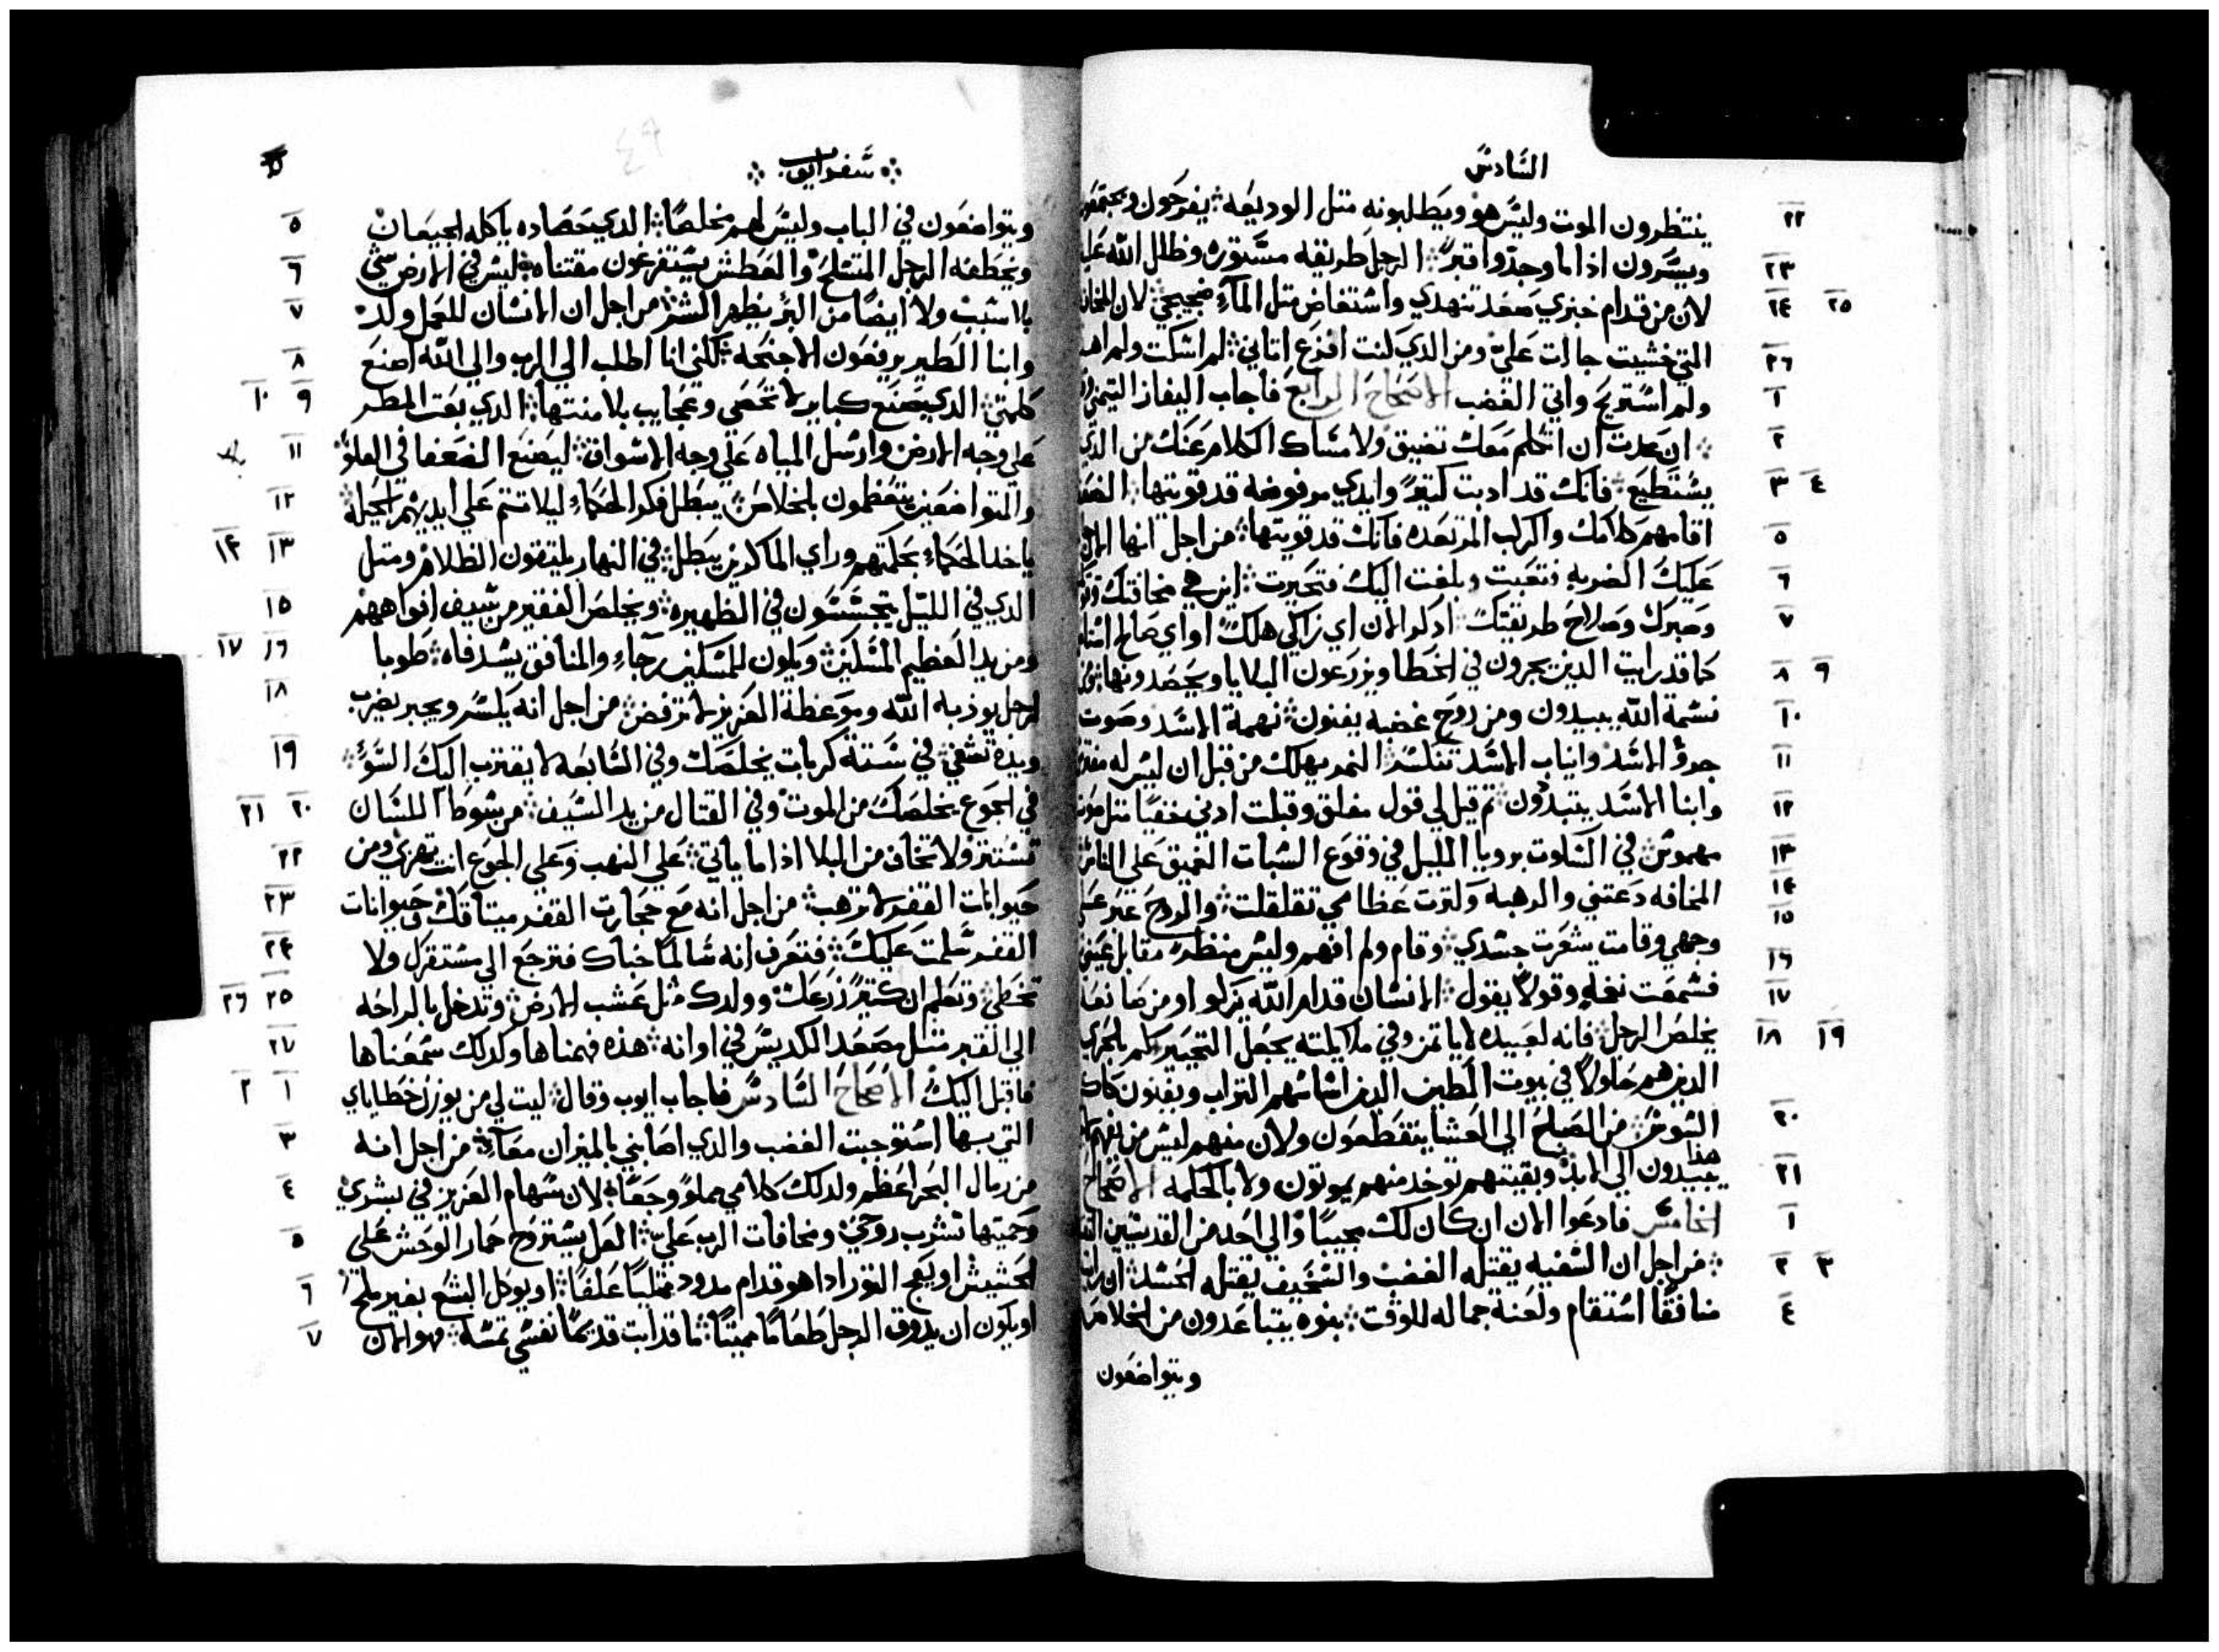 السَّادسَ
٢٢ ينتظرون الموت وليسَ هو ويَطلبونه متل الوديعَه ∴ يفرحَون ويجتمعَون
٢٣ ويسَّرون اذا ما وجدوا قبرً ∴ الرجل طريقه مسَّتوره وظلل اللّه عَليه
٢٤ ٢٥ لان من قدام خبزي صَعَد تنهدي واسَتفاض متل المآءِ ضجيجي ∴ لان المخافه
٢٦ التي خشيت جاات عَليَّ ومن الذي كنت افزع اتاني ∴ لم اسَكت ولم اهدا
١ ولم اسَتريح واتي الغضب الاصَحاحَ الرابعَ فاجاب اليفاز التيمني
٢ ∴ ان عَدت ان اتكلم معَك تضيق ولامسَاك الكلام عَنك من الذي
٣ ٤ يسَتطيعَ ∴ فانك قد ادبت كتيرً وايدي مرفوضه قد قويتها ∴ الضعَفا
٥ اقامهم كلامك والركب المرتعَده فانك قد قويتها ∴ من اجل انها الان
٦ عَليكَ الضربه فتعَبت وبلغت اليك فتحَيرت ∴ اين هي مخافتك
٧ وصَبرك وصَلاحَ طريقتك ∴ ادكر الان اي زاكي هلك او اي صَالح
٨ ٩ كما قد رايت الدين يحرون في الخطا ويزرعَون البلايا ويحصَدونها
١٠ نسَمة اللّه يبيدون ومن روحَ غضبه يفنون ∴ نهمة الاسَد وصَوت
١١ جروُ الاسَد وانياب الاسَد تنكسَر ∴ النمر يهلك من قبل ان ليسَ له
١٢ وابنا الاسَد يتبدّون ∴ تم قيل لي قول مغلق وقبلت ادني خفيًا متل صَوت
١٣ مهموسَ ∴ في السَكوت برويا الليل في وقوعَ السَّبات الغميق عَلى الناسَ
١٤ المخافه دعَتني والرهبه وكترت عَظامي تقلقلت ∴ والروحَ عَبر
١٥ ١٦ وجهي وقامت شعَرت جسَدي ∴ وقام ولم افهم وليسَ منظرً مقابل عَيني
١٧ فسَمعَت نغمه وقولًا يقول ∴ الانسَان قدام اللّه يزكو او من صَانعَه
١٨ ١٩ يخلصَ الرجل ∴ فانه لعَبيده لا ياتمن وفي ملايكته يجعَل التحَير
الدين هم حَلولًا في بيوت الَطين الدين اسَاسَهم التراب ويفنون
٢٠ السَوسَ ∴ من الصَباحَ الى العَشا ينقطعَون ولان منهم ليسَ من يفهم
٢١ يبيدون الى الابد ∴ وبقيتهم توخد منهم يموتون ولا بالحَكمه الاصَحاحَ
١ الخامسَ فادعَوا الان ان كان لك مجيبًا والي احَد من القديسَين
٢ ٣ ∴ من اجل ان السَفيه يقتله الغضب والسَخيف يقتله الحَسَد ∴ ان رايت
٤ منافقًا اسَتقام ولعَنة جماله للوقت ∴ بنوه يتباعَدون من الخلاصَ
ويتواضعَون
∴ سَفر ايوب ∴
٥ ويتواضعَون في الباب وليسَ لهم مخلصَا ∴ الدي حَصَاده ياكله الجيعَان
٦ ويخَطفه الرجل المتسَلحَ والعَطش يسَتفرغون مقتناه ∴ ليسَ في الارض شي
٧ بلا سَبب ولا ايضًا من البر يظهر الشر ∴ من اجل ان الانسَان للعَمل ولد
٨ وابنا الَطير يرفعَون الاجنحَه ∴ لكني انا اطلب الى الرب والي اللّه اصَنعَ
٩ ١٠ كلمتي ∴ الدي يصَنعَ كباير لا تحَصَى وعَجايب بلا منتها ∴ الدي بعَت المطر
١١ عَلى وجه الارض وارسَل المياه عَلي وجه الاسَواق ∴ ليصَنعَ الضعَفا في العَلوّ
١٢ والمتواضعَين يتعَظمون بالخلاصَ ∴ يبَطل فكر الحَكماءِ ليلا تتم عَلى ايديهم الحَيله ∴
١٣ ١٤ ياخد الحَكماءِ بحَكمتهم وراي الماكرين يبَطل ∴ في النهار يلتقون الظلام ومتل
١٥ الدي في الليل يتجسَسَون في الظهيره ∴ ويخلصَ الفقير من سَيف افواههم
١٦ ١٧ ومن يد العَظيم المسَكين ∴ ويكون للمسَكين رجاءِ والمنافق يسَد فاه ∴ طوبا
١٨ لرجل يوذبه اللّه وموعَظة العَزيز لا ترفض ∴ من اجل انه يكسَر ويجبر يضرب
١٩ ويده تشفي ∴ في سَتة كربات يخلصَك وفي السَّابعَه لا يقترب اليكَ السَّوء ∴
٢٠ ٢١ في الجوعَ يخلصَكَ من الموت وفي القتال من يد السَّيف ∴ من سَوَط اللسَّان
٢٢ تسَتتر ولا تخاف من البلا ادا ما ياتي ∴ عَلى النهب وعَلى الجوعَ انت تهزي ومن
٢٣ حَيوانات القفر لا ترهب ∴ من اجل انه معَ حَجارت القفر ميتاقك وحَيوانات
٢٤ القفر سَلمت عَليكَ ∴ فتعَرف انه سَالمًا خباك فترجعَ الى مسَتقرك ولا
٢٥ ٢٦ تخَطي ∴ وتعَلم ان كتيرً زرعَك وولدك متل عَشب الارض ∴ وتدخل بالراحَه
٢٧ الى القبر متل مصَعَد الكديسَ في اوانه ∴ هذه فهمناها وكدلك سَمعَناها
١ ٢ فاقبل اليكَ الاصَحاحَ السَّادسَ فاجاب ايوب وقال ∴ ليت لي من يوزن خَطاياي
٣ التي بسها اسَتوجبت الغضب والدي اصَابني بالميزان معَاً ∴ من اجل انه
٤ من رمال البحَر اعَظم ولدلك كلامي مملوً وجعًا ∴ لان سَهام العَزيز في بشري
٥ وحَميتها تشرب روحَي ومخافات الرب عَليّ ∴ العَل يسَتروحَ حَمار الوحَش عَلي
٦ الحَشيش او يعَج التور ادا هو قدام مدود ممتليًا عَلفًا ∴ او يوكل البشعَ بغير ملحَ
٧ او يكون ان يدوق الرجل طَعَامًا مميتًا ∴ ما قد ابت قديمًا نفسَي تمسَه ∴ هو الان